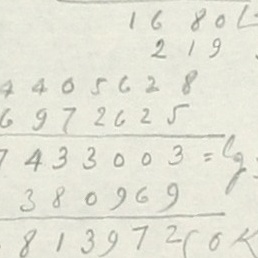 1 6 8 0
2 1 9
4 4 0 5 6 2 8
6 9 7 2 6 2 5
7 4 3 3 0 0 3 = lg
3 8 0 9 6 9
8 1 3 9 7 2